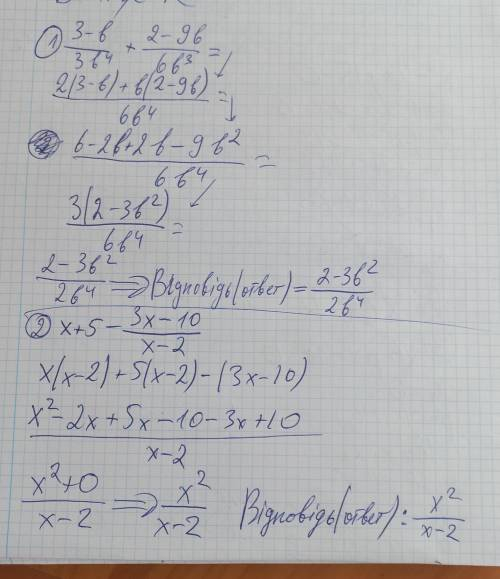 ① (3-в)/(3в⁴) + (2-9в)/(6в³) =
(2(3-в)+в(2-9в))/(6в⁴) =
(6-2в+2в-9в²)/(6в⁴) =
(3(2-3в²))/(6в⁴) =
(2-3в²)/(2в⁴) ⇒ Відповідь(ответ) = (2-3в²)/(2в⁴)
② x+5 - (3x-10)/(x-2)
x(x-2)+5(x-2)-(3x-10)
(x²-2x+5x-10-3x+10)/(x-2)
(x²+0)/(x-2) ⇒ x²/(x-2) Відповідь(ответ): x²/(x-2)